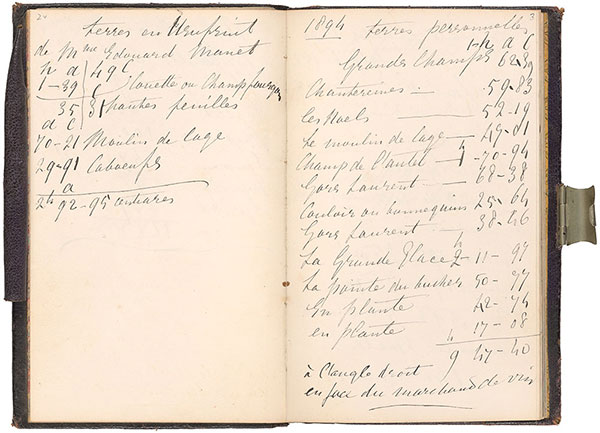 24
terres en Usufruit
de Mme Edouard Manet
h a
1-39
49 c
Louette ou Champ
35
a c
31
hautes feuilles
70-21 Moulin de Cage
29-91
a
2h 92-95 centiares
3
1894 terres personnelles
h a c
Grandes Champs 62-39
Chantereines - 59-83
les Noels - 52-19
Le moulin de Cage - 49-01
Champ de l'autel - 1h -70-94
Gars Laurent - 68-38
Couloir ou bonnequins 25-64
Gars Laurent - 38-46
h
La Grande Place 2-11-97
La pointe du bucher 50-77
En plante 42-74
en plante 17-08
h
9 47-40
à l'angle droit
en face du marchand de vin